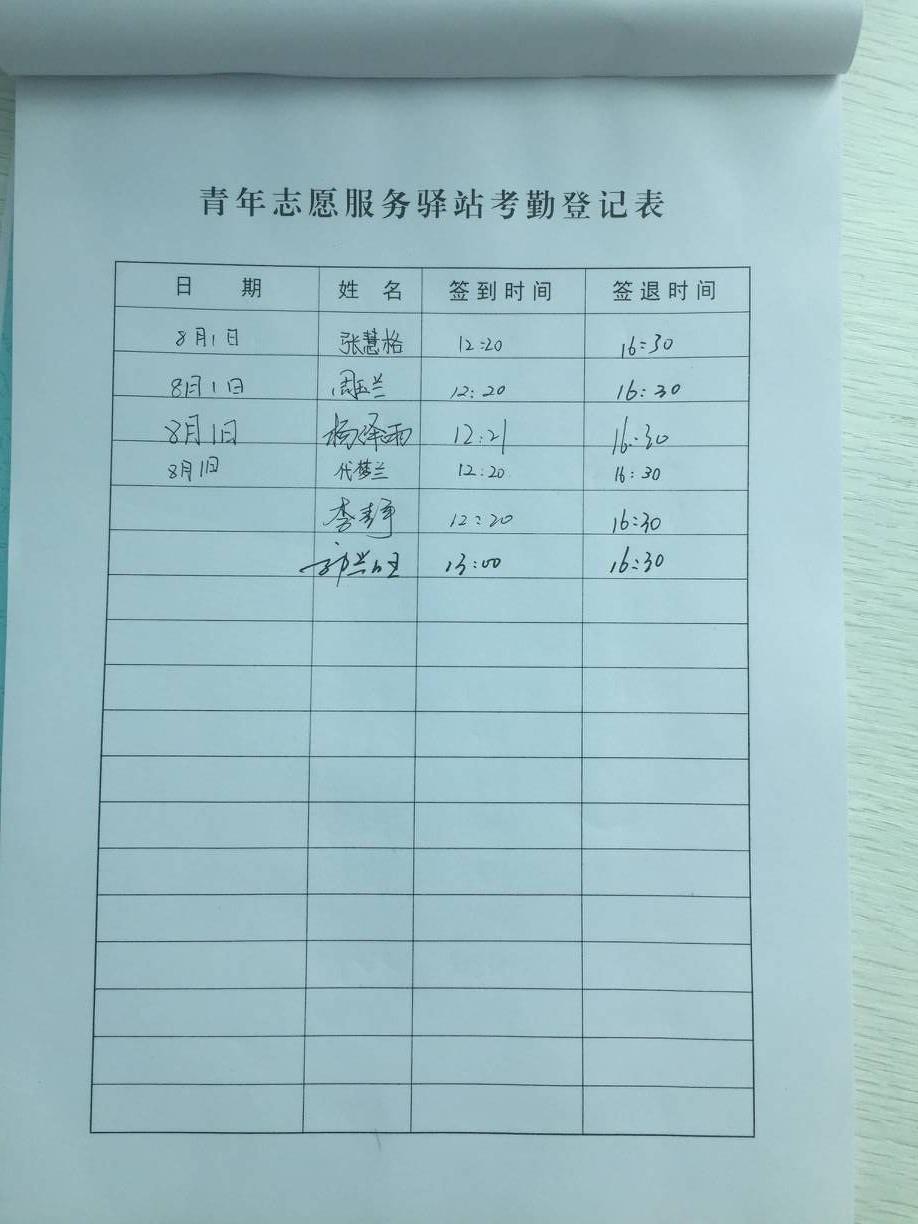 青年志愿服务驿站考勤登记表
日 期 姓 名 签到时间 签退时间
8月1日 张慧格 12:20 16:30
8月1日 周玉兰 12:20 16:30
8月1日 杨泽雨 12:21 16:30
8月1日 代梦兰 12:20 16:30
李 12:20 16:30
13:00 16:30